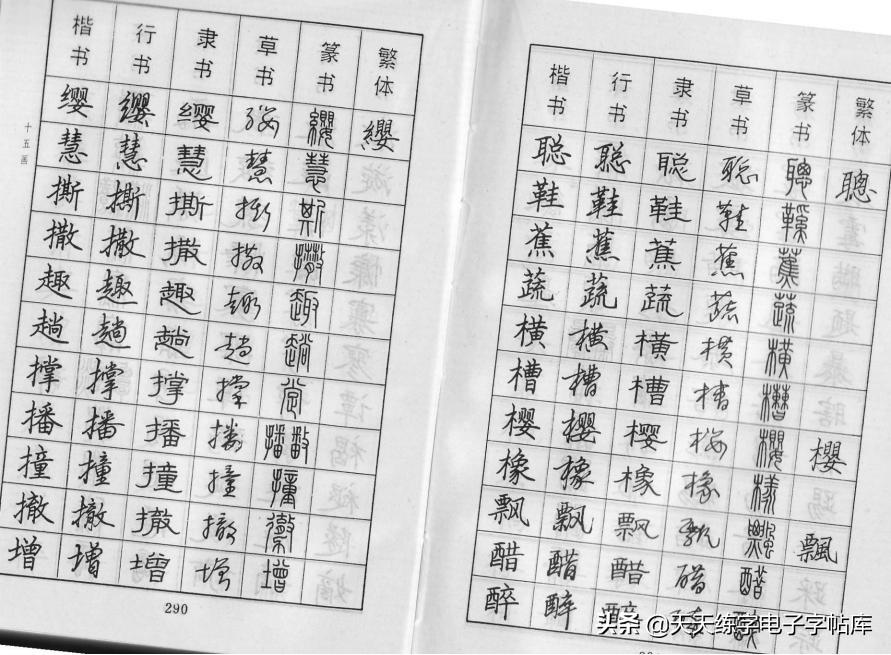 楷书 行书 隶书 草书 篆书 繁体
缨 缨 缨 缨 纓 纓
慧 慧 慧 慧 慧
撕 撕 撕 撕 斯
撒 撒 撒 撒
趣 趣 趣 趣 趣
趟 趟 趟 趟
撑 撑 撑 撑
播 播 播 播 播
撞 撞 撞 撞 撞
撤 撤 撤 撤
增 增 增 增 增
十五画
290
楷书 行书 隶书 草书 篆书 繁体
聪 聪 聪 聪 聰 聰
鞋 鞋 鞋 鞋
蕉 蕉 蕉 蕉 蕉
蔬 蔬 蔬 蔬 蔬
横 横 横 横 横
槽 槽 槽 槽 槽
樱 樱 樱 樱 櫻 櫻
橡 橡 橡 橡 樣
飘 飘 飘 飘 飄 飄
醋 醋 醋 醋 醋
醉 醉 醉 醉 醉
头条 @天天练字电子字帖库